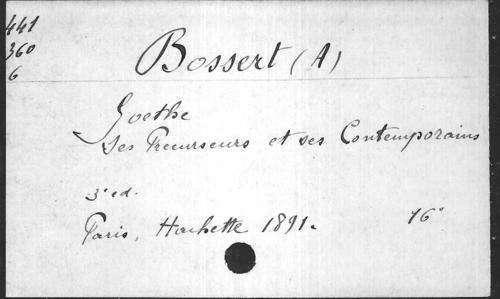 441
360
6
Bossert (A)
Goethe
Ses Précurseurs et ses Contemporains
3e ed.
Paris, Hachette 1891.
16°